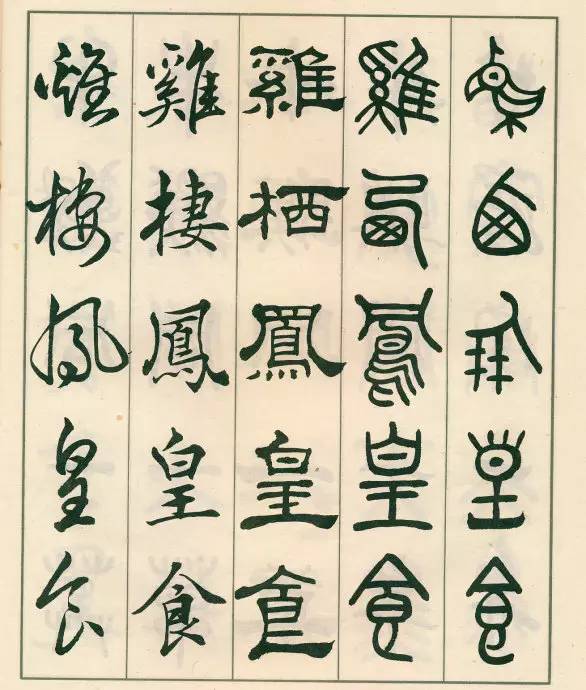 雞西鳳皇食
雞西鳳皇食
雞栖鳳皇食
雞棲鳳皇食
雞棲鳳皇食